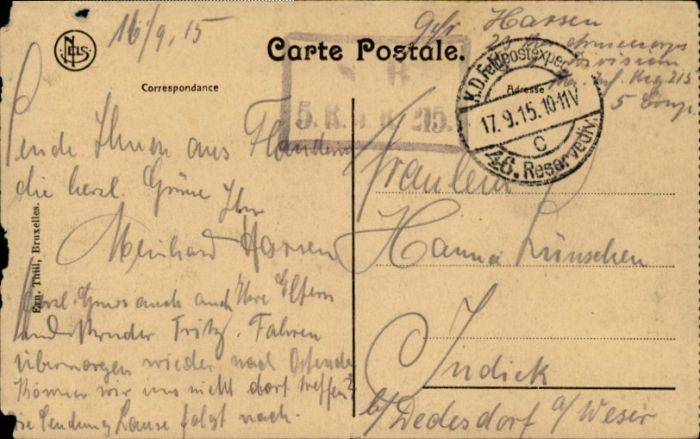 NELS
16/9,15
Carte Postale.
Correspondance
Adresse
Gefr. Harsen
Armeecorps
Division
Res. Inf. Reg 215
5 Comp.
S. B.
5. R. 215.
K.D. Feldpostexped.
17.9.15.10-11V
C
46. Reservediv.
Sende Ihnen aus Flandern
die herzl. Grüsse Ihr
Meinhard Harsen
Herzl. Gruss auch an Ihre Eltern
und Bruder Fritz. Fahren
übermorgen wieder nach Ostende
Können wir uns nicht dort treffen?
Die Sendung Lause folgt nach.
Ern. Thill, Bruxelles.
Fräulein
Hanna Lünschen
Indiek
b/ Dedesdorf a/ Weser